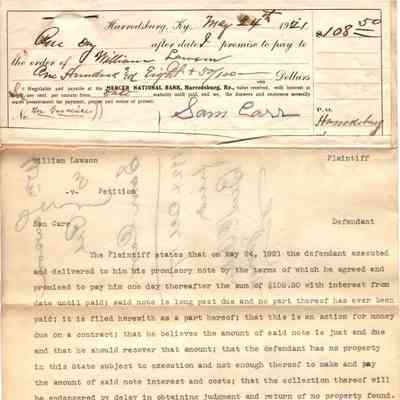 Harrodsburg, Ky. May 24th 1921 $108.50
One day after date I promise to pay to
the order of William Lawson
One Hundred & Eight & 50/100 Dollars
Negotiable and payable at the MERCER NATIONAL BANK, Harrodsburg, Ky., value received, with interest at
per cent. per annum from date maturity until paid, and we, the drawers and endorsers severally
waive presentment for payment, protest and notice of protest.
Sam Carr
P. O.
Harrodsburg
William Lawson Plaintiff
-v- Petition
Sam Carr Defendant
The Plaintiff states that on may 24, 1921 the defendant executed
and delivered to him his promisory note by the terms of which he agreed and
promised to pay him one day thereafter the sum of $108.50 with interest from
date until paid; said note is long past due and no part thereof has ever been
paid; it is filed herewith as a part hereof; that this is an action for money
due on a contract; that he believes the amount of said note is just and due
and that he should recover that amount; that the defendant has no property
in this State subject to execution and not enough thereof to make and pay
the amount of said note interest and costs; that the collection thereof will
be endangered by delay in obtaining judgment and return of no property found.